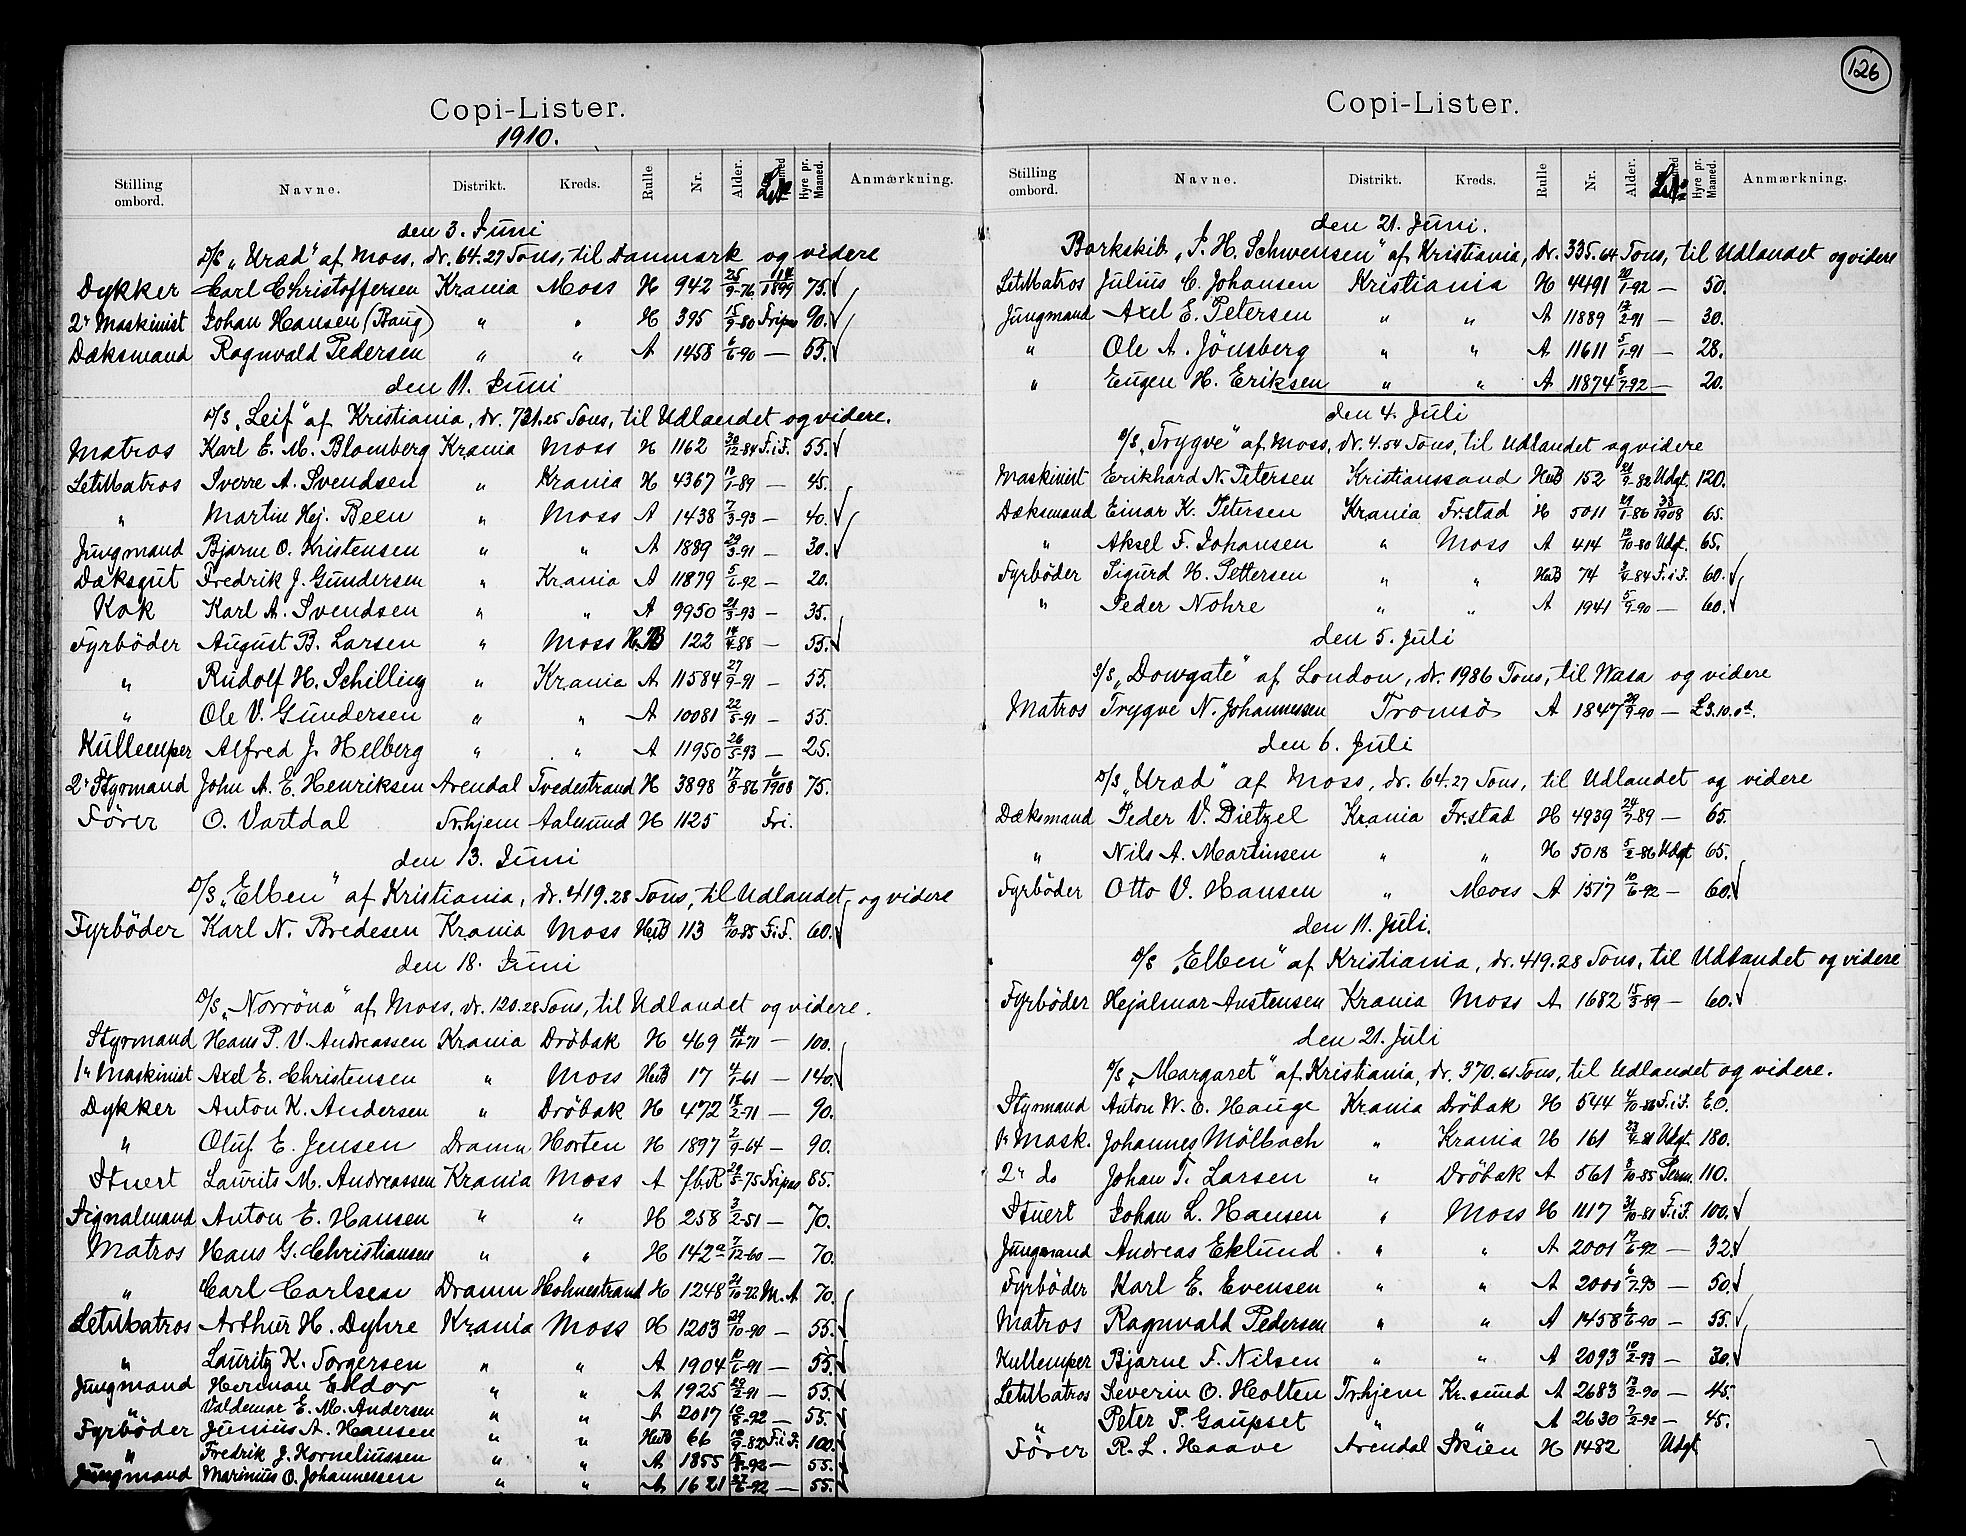 Copi-Lister.
1910.
Stilling ombord. Navne. Distrikt. Kreds. Rulle Nr. Alder. Hyre pr. Maaned. Anmærkning.
den 3. Juni
D/S „Uræd" af Moss, dr. 64.27 Tons, til Danmark og videre
Dykker Carl Christoffersen Krania Moss H 942 25/9-76 1899 75.
2n Maskinist Johan Hansen (Baug) " " H 395 15/9-80 Fripas 90.
Dæksmand Ragnvald Pedersen " " A 1458 6/6-90 — 55.
den 11. Juni
D/S „Leif" af Kristiania, dr. 731.25 Tons, til Udlandet og videre.
Matros Karl E. M. Blomberg Krania Moss H 1162 30/12-84 F.i.F. 55.
LetMatros Sverre A. Svendsen " Krania H 4367 19/1-89 — 45.
" Martin Hej. Been " Moss A 1438 7/3-93 — 40.
Jungmand Bjarne O. Kristensen " " A 1889 29/3-91 — 30.
Dæksgut Fredrik J. Gundersen " Krania A 11879 5/6-92 — 20.
Kok Karl A. Svendsen " " A 9950 21/3-93 — 35.
Fyrbøder August B. Larsen " Moss H.B 122 14/4-88 — 55.
" Rudolf H. Schilling " Krania A 11584 27/9-91 — 55.
" Ole V. Gundersen " " A 10081 22/5-91 — 55.
Kullemper Alfred J. Helberg " " A 11950 26/5-93 — 25.
2n Styrmand John A. E. Henriksen Arendal Tvedestrand H 3898 17/8-86 6/1908 75.
Fører O. Vartdal Tr.hjem Aalesund H 1125 Fri.
den 13. Juni
D/S „Elben" af Kristiania, dr. 419.28 Tons, til Udlandet og videre
Fyrbøder Karl N. Bredesen Krania Moss HB 113 19/10-85 F.i.F. 60.
den 18. Juni
D/S „Norröna" af Moss, dr. 120.28 Tons, til Udlandet og videre.
Styrmand Hans P. V. Andreassen Krania Dröbak H 469 14/11-71 — 100.
1n Maskinist Axel E. Christensen " Moss HB 17 4/1-61 — 140.
Dykker Anton K. Andersen " Dröbak H 472 18/2-71 — 90.
" Oluf E. Jensen Dramn Horten H 1897 2/9-64 — 90.
Stuert Laurits M. Andreassen Krania Moss A f.b.R 29/5-75 Fripas 85.
Signalmand Anton E. Hansen " " H 258 3/2-51 — 70.
Matros Hans G. Christiansen " " H 142a 7/12-60 — 70.
" Carl Carlsen Dramn Holmestrand H 1248 21/10-72 M.A 70.
LetMatros Arthur H. Dyhre Krania Moss H 1203 29/10-90 — 55.
" Lauritz K. Torgersen " " A 1904 10/6-91 — 55.
Jungmand Herman Eldor " " A 1925 29/2-91 — 55.
" Valdemar E. M. Andersen " " A 2017 10/8-92 — 55.
Fyrbøder Junius A. Hansen " " HB 66 10/9-82 F.i.F. 100.
" Fredrik J. Korneliussen " " A 1855 15/8-92 — 55.
Jungmand Marinius O. Johannessen " " A 1621 27/6-92 — 55.
126
Copi-Lister.
Stilling ombord. Navne. Distrikt. Kreds. Rulle Nr. Alder. Hyre pr. Maaned. Anmærkning.
den 21. Juni.
Barkskib „P. H. Schwensen" af Kristiania, dr. 335.64 Tons, til Udlandet og videre
LetMatros Julius C. Johansen Kristiania H 4491 20/1-92 — 50.
Jungmand Axel E. Petersen " " A 11889 12/2-91 — 30.
" Ole A. Jönsberg " " A 11611 5/1-91 — 28.
" Eugen H. Eriksen " " A 11874 8/7-92 — 20.
den 4. Juli
D/S „Trygve" af Moss, dr. 4.54 Tons, til Udlandet og videre
Maskinist Erikhard N. Petersen Kristianssand HB 152 21/9-82 Udgt. 120.
Dæksmand Einar K. Petersen Krania Fr.stad H 5011 27/1-86 1908 65.
" Aksel F. Johansen " Moss A 414 12/10-80 Udgt. 65.
Fyrbøder Sigurd H. Pettersen " " HB 74 2/4-84 F.i.F. 60.
" Peder Nohre " " A 1941 5/9-90 — 60.
den 5. Juli
S/S „Dowgate" af London, dr. 1986 Tons, til Wasa og videre
Matros Trygve N. Johannessen Tromsö A 1847 29/9-90 — £3.10.0d.
den 6. Juli
D/S „Uræd" af Moss, dr. 64.27 Tons, til Udlandet og videre
Dæksmand Peder V. Dietzel Krania Fr.stad H 4939 24/7-89 — 65.
" Nils A. Martinsen " " H 5018 5/2-86 Udgt 65.
Fyrbøder Otto V. Hansen " Moss A 1517 10/6-92 — 60.
den 11. Juli.
D/S „Elben" af Kristiania, dr. 419.28 Tons, til Udlandet og videre
Fyrbøder Hejalmar Austensen Krania Moss A 1682 15/3-89 — 60.
den 21. Juli
D/S „Margaret" af Kristiania, dr. 370.61 Tons, til Udlandet og videre.
Styrmand Anton W. O. Hauge Krania Dröbak H 544 4/10-86 F.i.F. E.O.
1n Mask. Johannes Mölbach " Krania H 161 23/4-81 Udgt. 180.
2n do Johan T. Larsen " Dröbak A 561 8/10-85 Perm. 110.
Stuert Johan L. Hansen " Moss H 1117 31/10-81 F.i.F. 100.
Jungmand Andreas Eklund " " A 2001 19/6-92 — 32.
Fyrbøder Karl E. Evensen " " A 2000 6/7-93 — 50.
Matros Ragnvald Pedersen " " A 1458 6/6-90 — 55.
Kullemper Bjarne F. Nilsen " " A 2093 10/2-93 — 30.
LetMatros Severin O. Holten Tr.hjem Kr.sund A 2683 12/2-90 — 45.
" Peter P. Gaupset " " A 2630 7/2-92 — 45.
Fører R. L. Haave Arendal Skien H 1482 Udgt